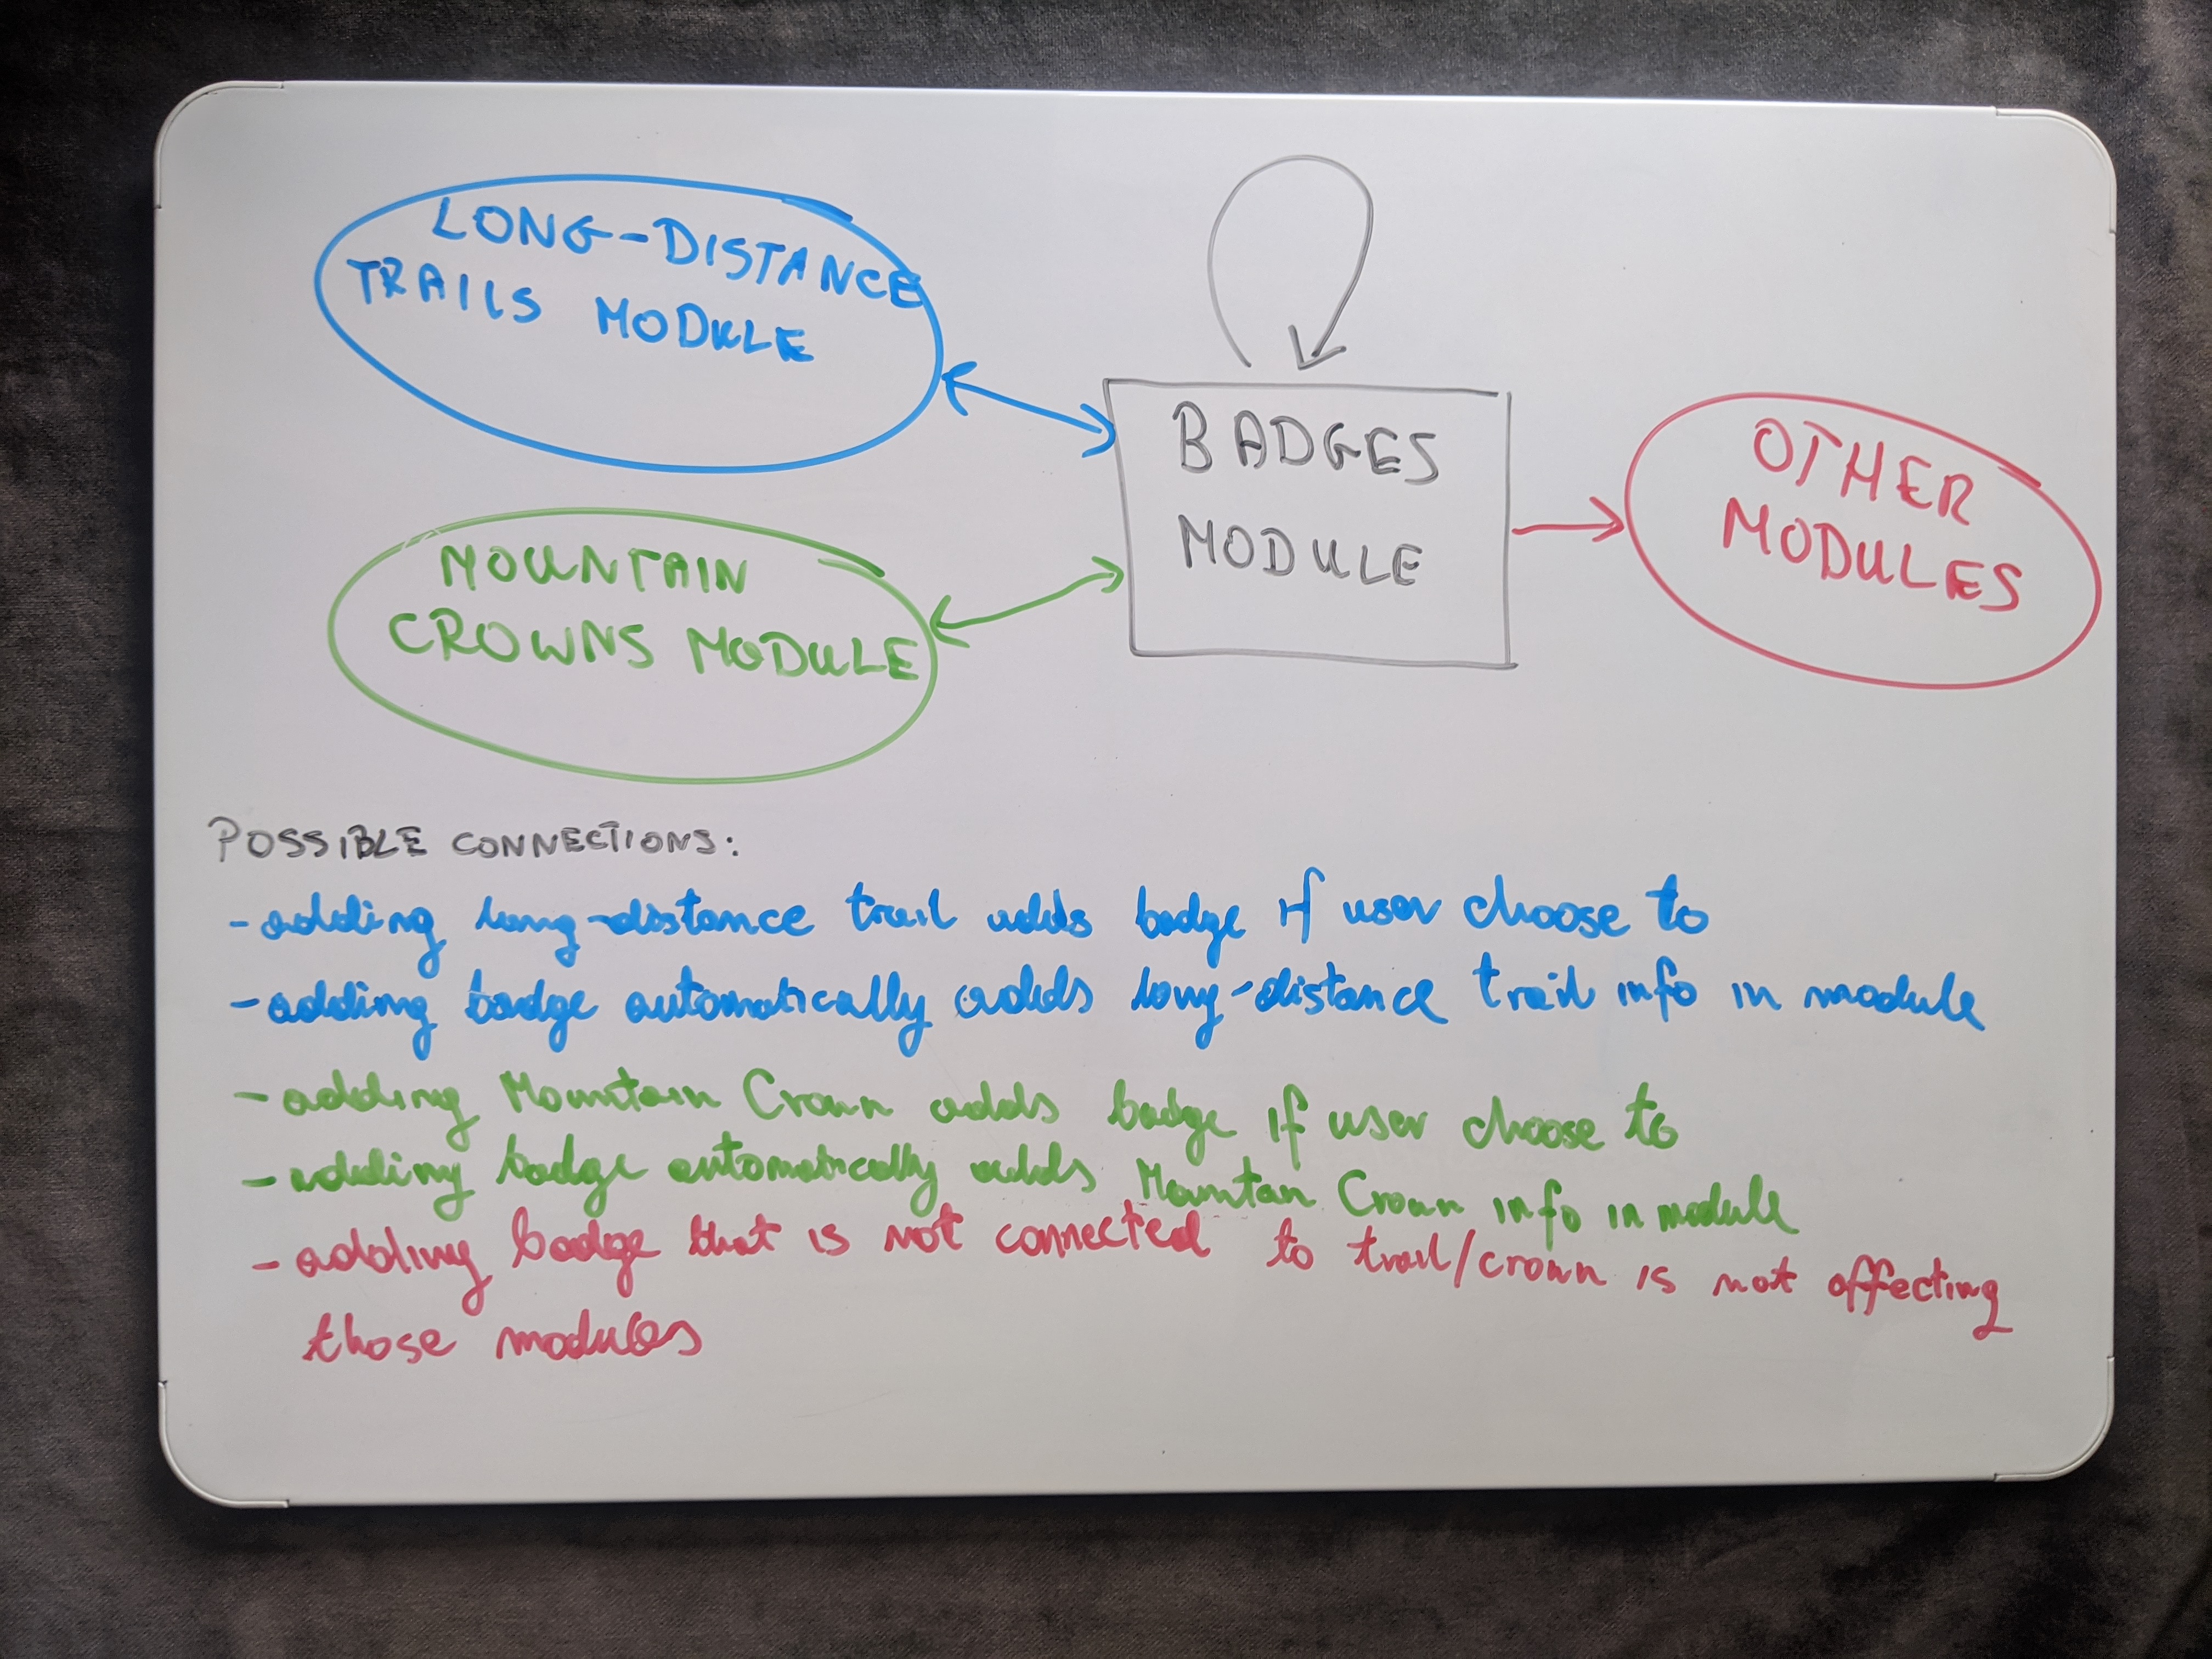 LONG-DISTANCE
TRAILS MODULE
BADGES
MODULE
OTHER
MODULES
MOUNTAIN
CROWNS MODULE
POSSIBLE CONNECTIONS:
-adding long-distance trail adds badge if user choose to
-adding badge automatically adds long-distance trail info in module
-adding Mountain Crown adds badge if user choose to
-adding badge automatically adds Mountan Crown info in module
-adding badge that is not connected to trail/crown is not affecting
those modules